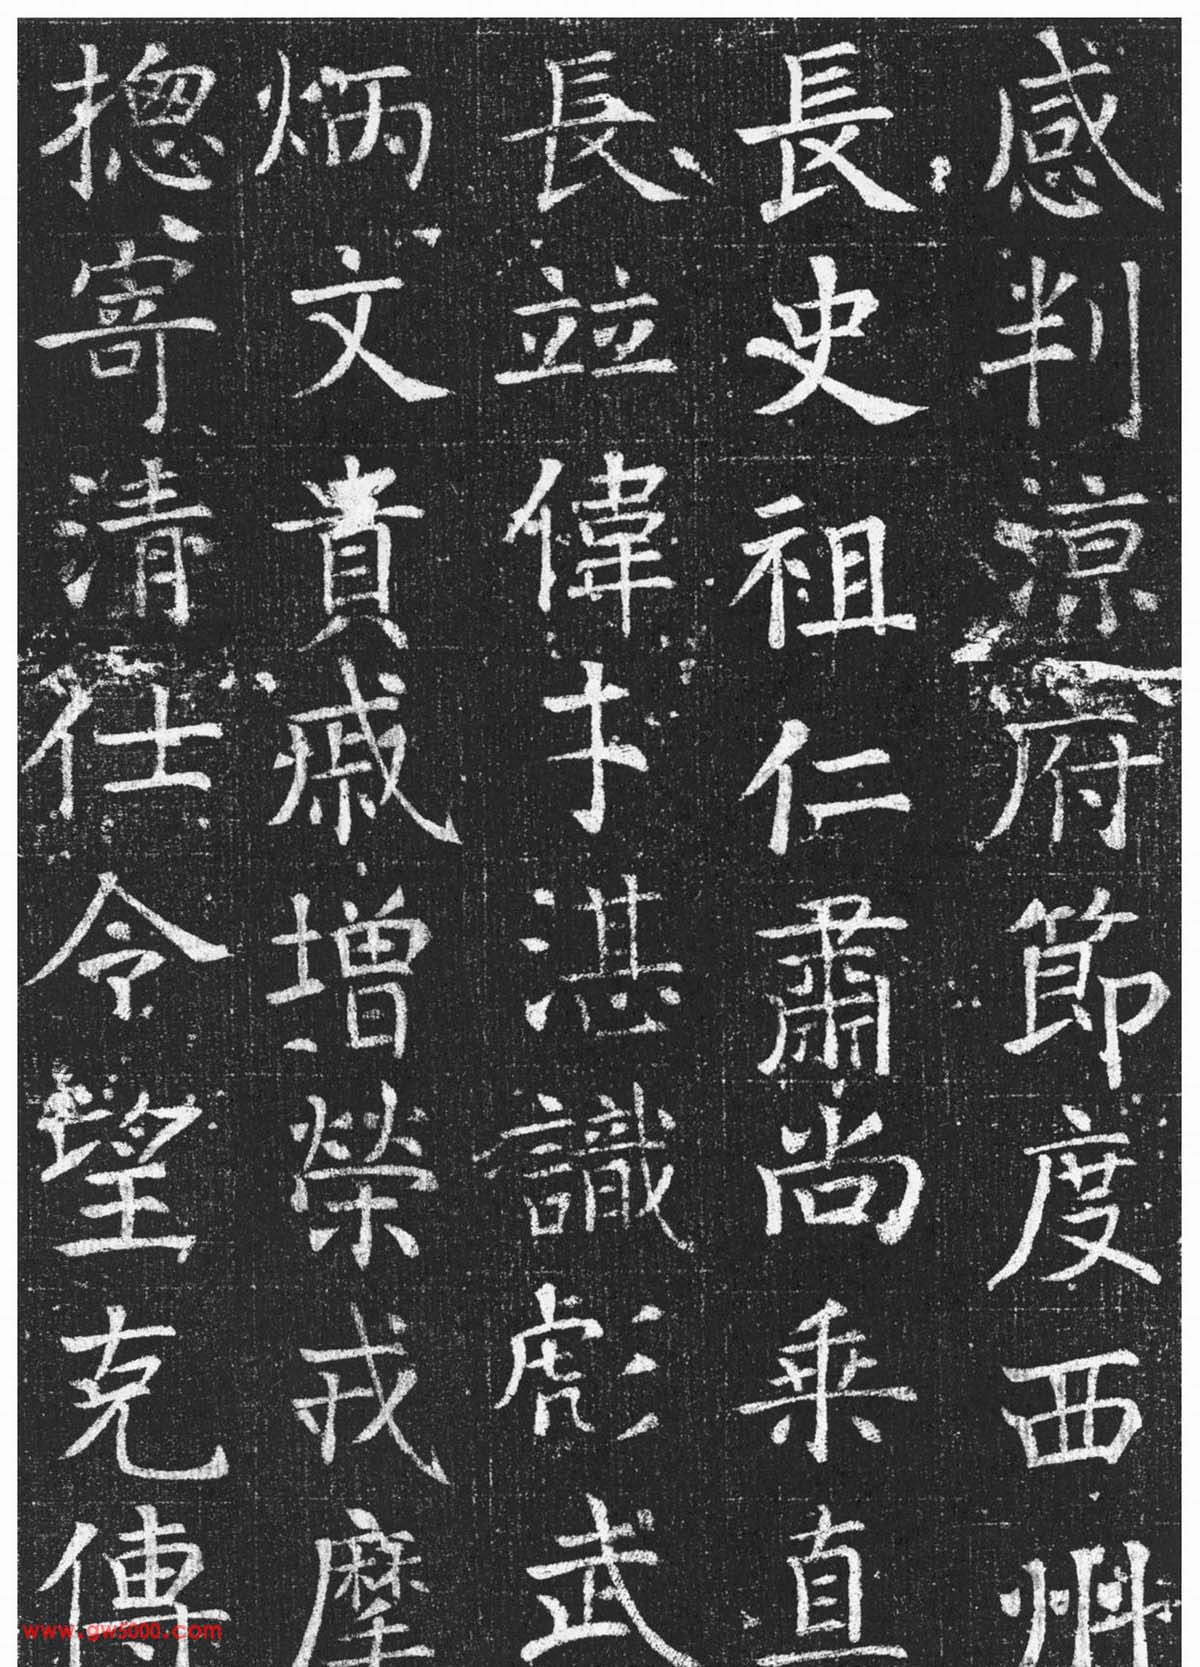 感判涼府節度西州
長史祖仁肅尚乗直
長並偉才湛識彪武
炳文貴戚増榮戎摩
揔寄清仕令望克傳
www.gw5000.com